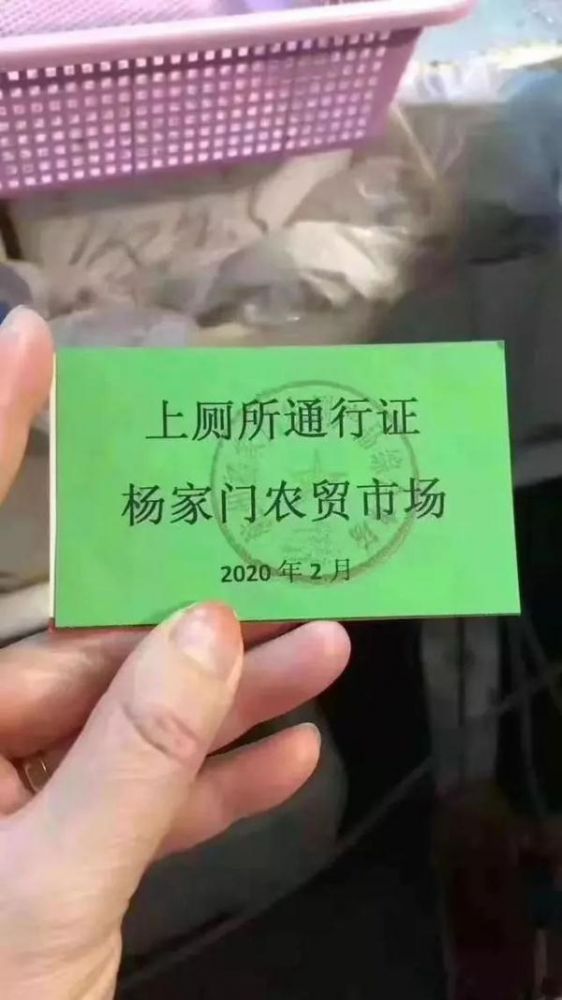 上厕所通行证
杨家门农贸市场
2020年2月